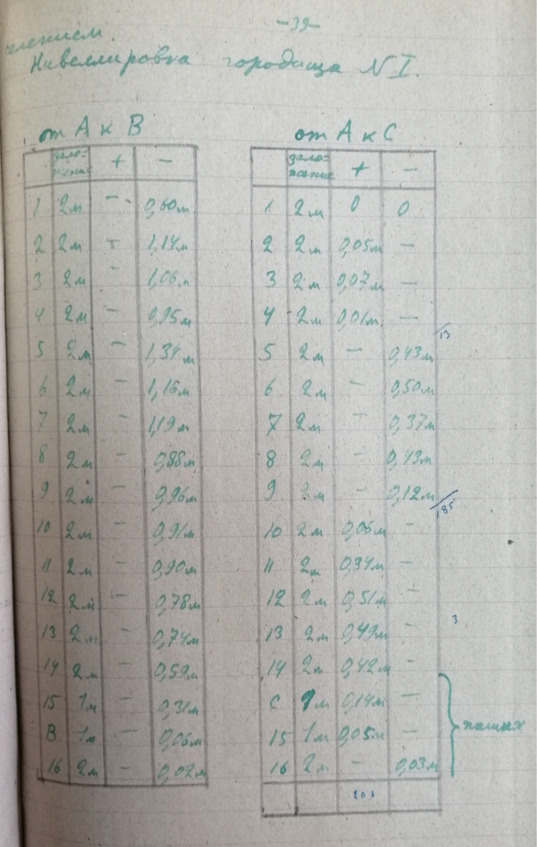 -39-
селением.
Нивеллировка городища N I.
от А к В
зало-
жение + -
1 2м - 0,60м
2 2м - 1,14м
3 2м - 1,06м
4 2м - 0,95м
5 2м - 1,34м
6 2м - 1,16м
7 2м - 1,19м
8 2м - 0,88м
9 2м - 0,96м
10 2м - 0,91м
11 2м - 0,90м
12 2м - 0,78м
13 2м - 0,74м
14 2м - 0,59м
15 1м - 0,31м
В 1м - 0,06м
16 2м - 0,02м
от А к С
зало-
жение + -
1 2м 0 0
2 2м 0,05м -
3 2м 0,07м -
4 2м 0,01м -
13
5 2м - 0,43м
6 2м - 0,50м
7 2м - 0,37м
8 2м - 0,43м
9 2м - 0,12м
185
10 2м 0,06м -
11 2м 0,34м -
12 2м 0,51м -
3
13 2м 0,49м -
14 2м 0,42м -
С 1м 0,14м -
15 1м 0,05м -
16 2м - 0,03м